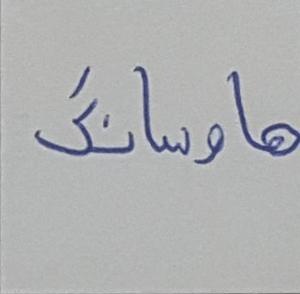 هاوسانگ